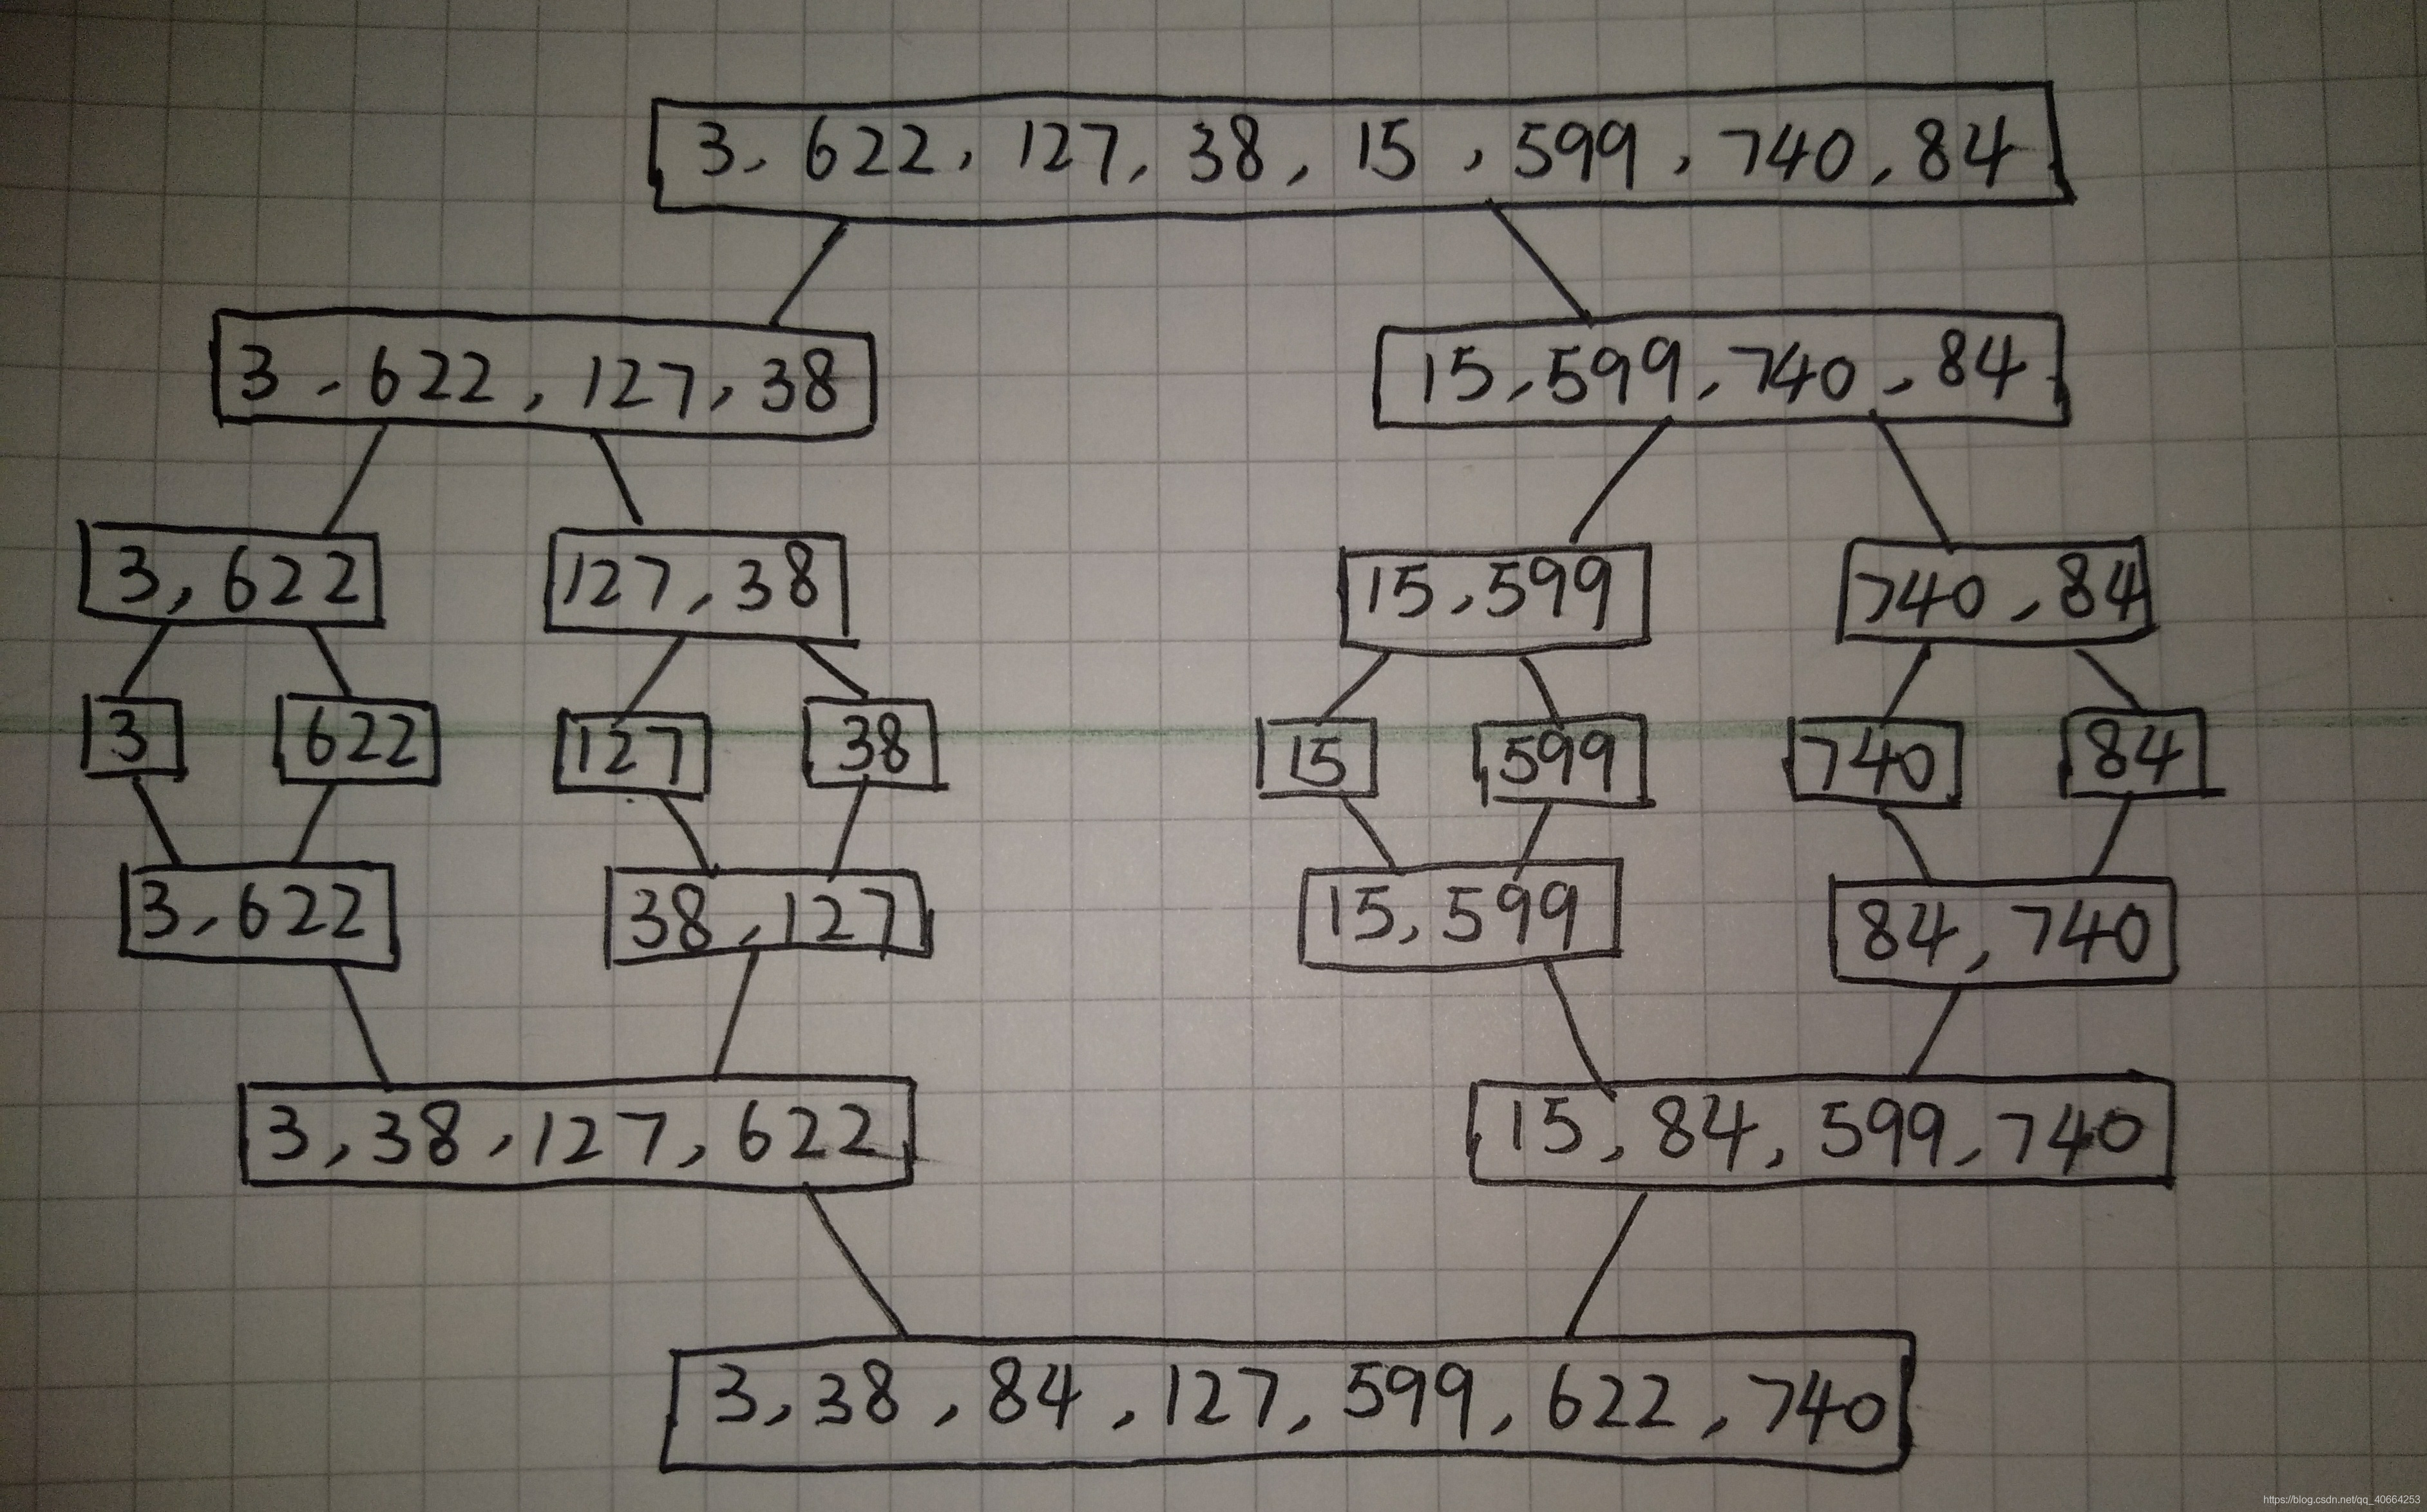 3, 622, 127, 38, 15, 599, 740, 84
3, 622, 127, 38
15, 599, 740, 84
3, 622
127, 38
15, 599
740, 84
3
622
127
38
15
599
740
84
3, 622
38, 127
15, 599
84, 740
3, 38, 127, 622
15, 84, 599, 740
3, 38, 84, 127, 599, 622, 740
https://blog.csdn.net/qq_40664253